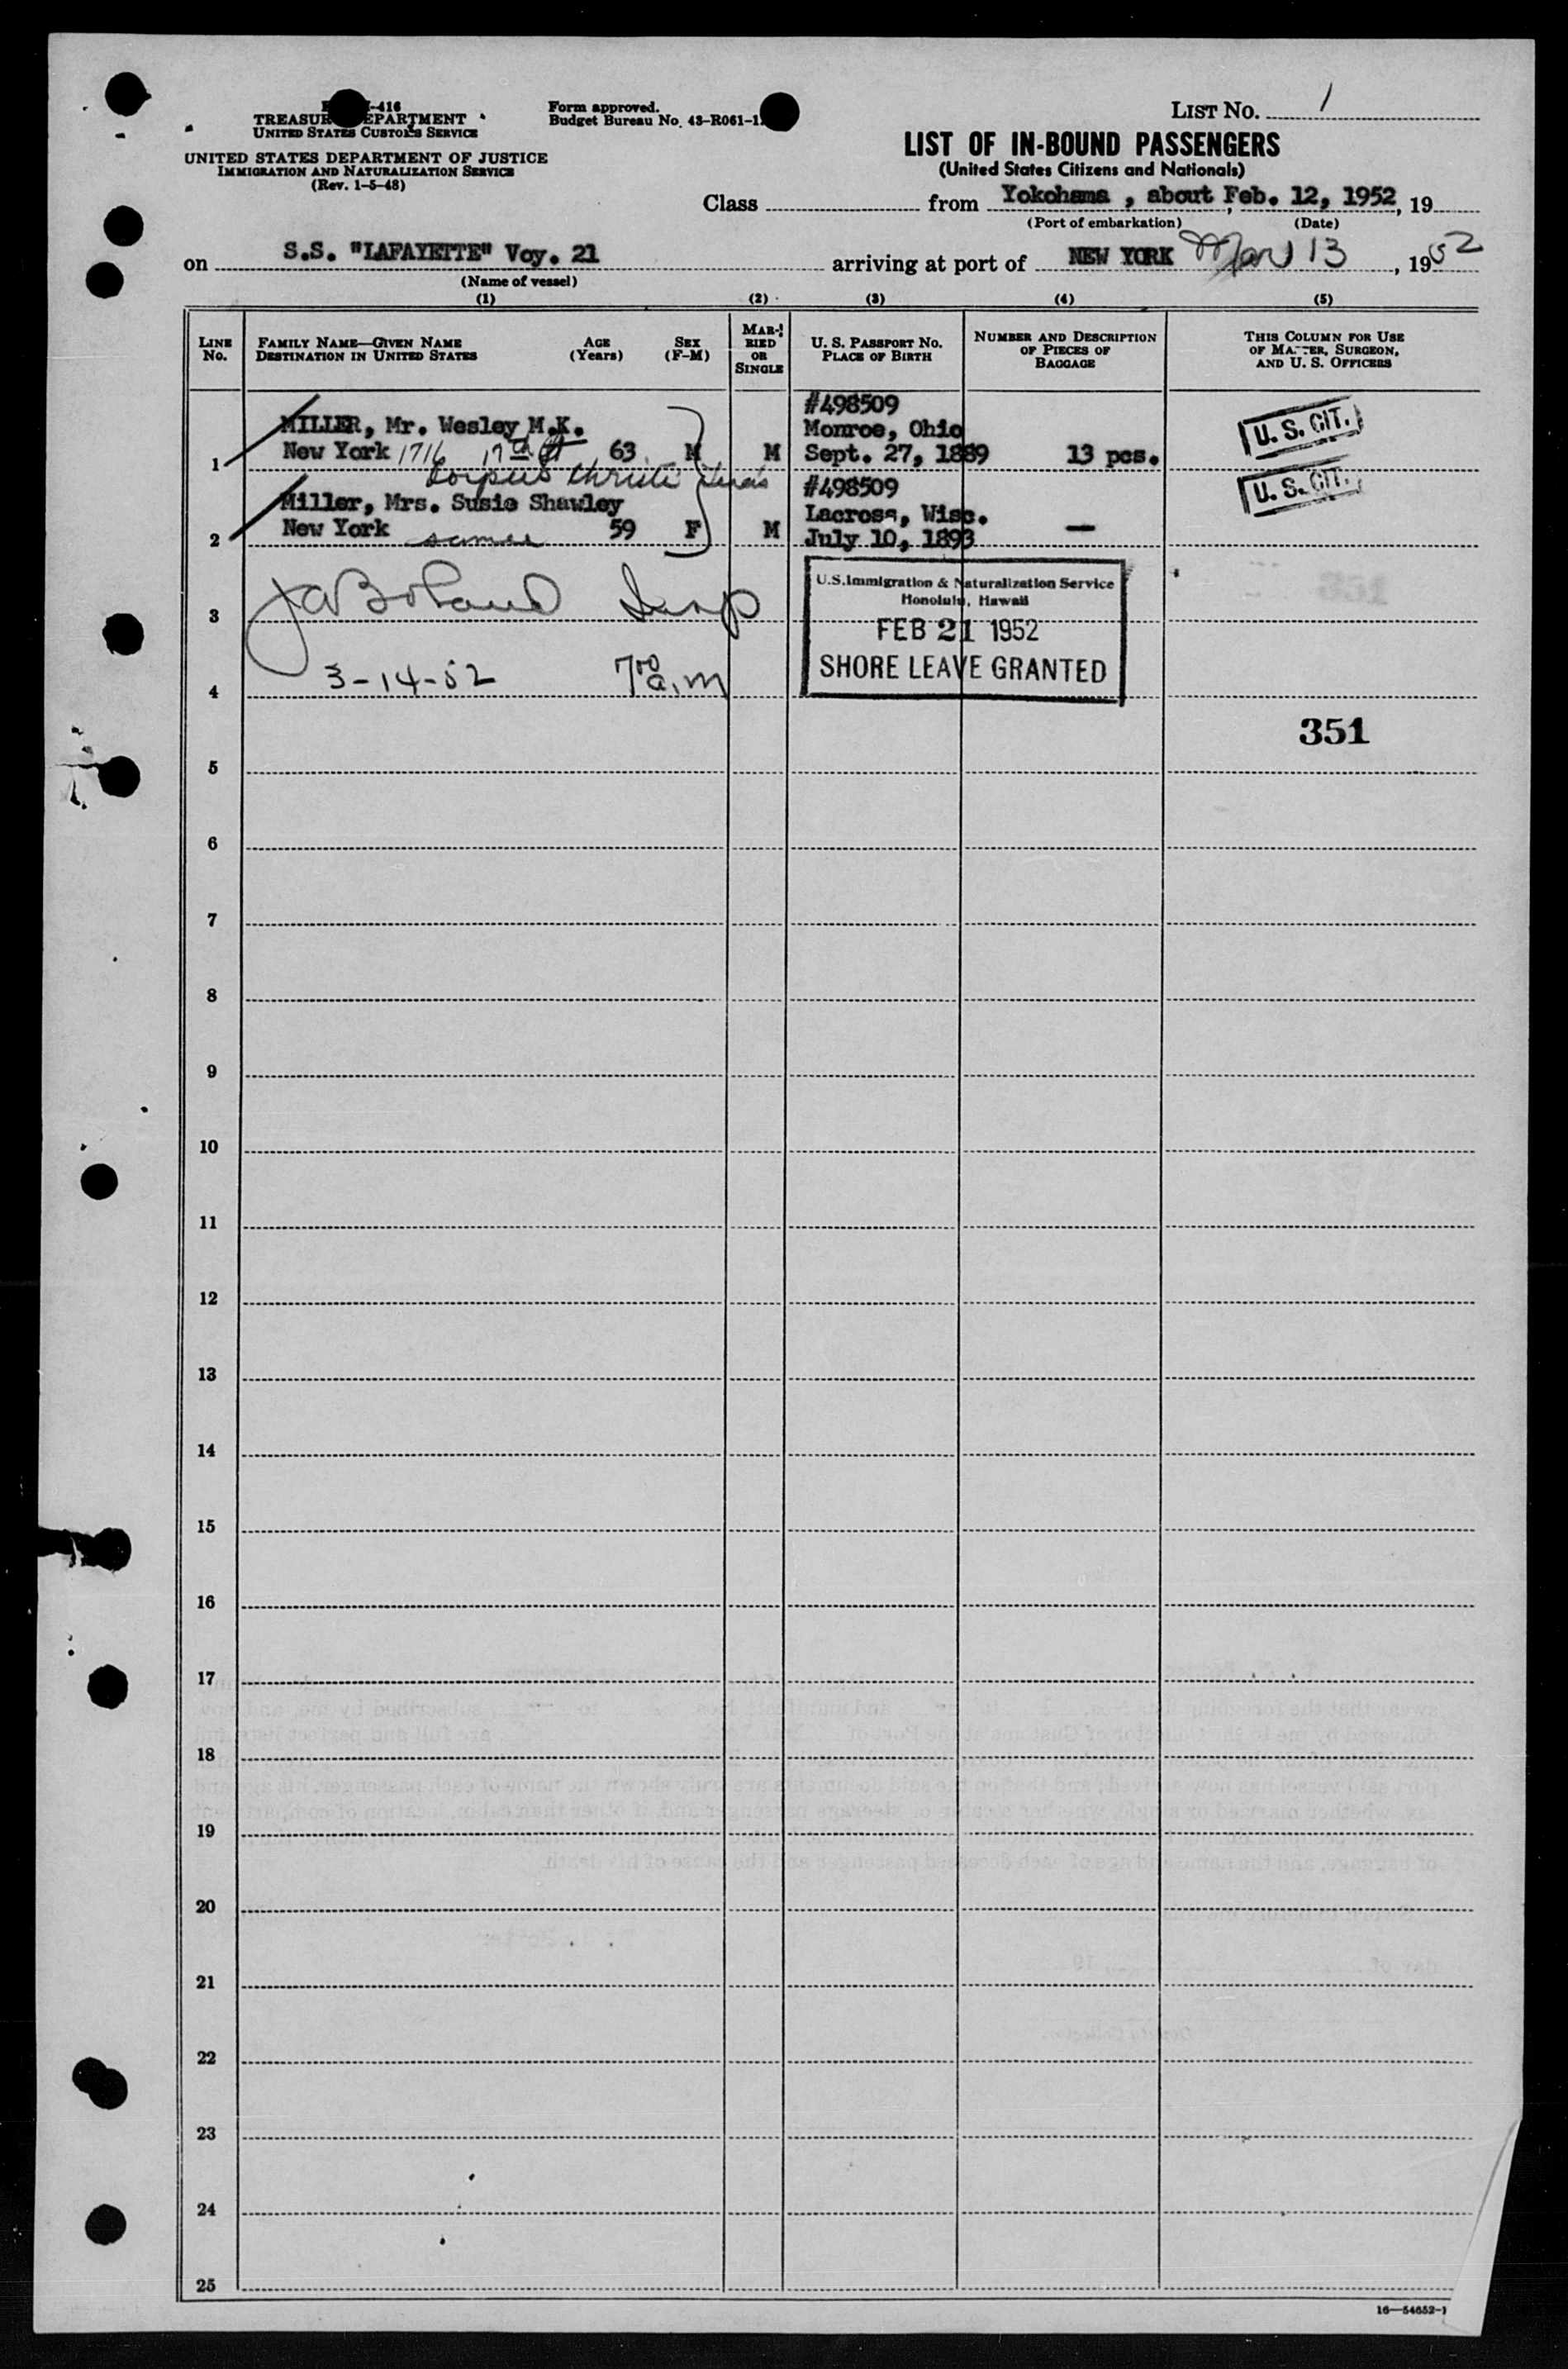 -416
TREASUR EPARTMENT
UNITED STATES CUSTOMS SERVICE
UNITED STATES DEPARTMENT OF JUSTICE
IMMIGRATION AND NATURALIZATION SERVICE
(Rev. 1-5-48)
Form approved.
Budget Bureau No. 43-R061-1
LIST No. 1
LIST OF IN-BOUND PASSENGERS
(United States Citizens and Nationals)
Class from Yokohama , about Feb. 12, 1952, 19
(Port of embarkation) (Date)
on S.S. "LAFAYETTE" Voy. 21 arriving at port of NEW YORK Mar 13, 1952
(Name of vessel)
(1) (2) (3) (4) (5)
LINE No. FAMILY NAME—GIVEN NAME DESTINATION IN UNITED STATES AGE (Years) SEX (F-M) MARRIED OR SINGLE U. S. PASSPORT No. PLACE OF BIRTH NUMBER AND DESCRIPTION OF PIECES OF BAGGAGE THIS COLUMN FOR USE OF MASTER, SURGEON, AND U. S. OFFICERS
#498509
MILLER, Mr. Wesley M.K. Monroe, Ohio U. S. CIT.
1 New York 1716 17th St 63 M M Sept. 27, 1889 13 pcs.
Corpus Christi Texas #498509 U. S. CIT.
Miller, Mrs. Susie Shawley Lacross, Wisc.
2 New York same 59 F M July 10, 1893 —
U.S. Immigration & Naturalization Service
Honolulu, Hawaii
3 J A Boland Insp FEB 21 1952
4 3-14-52 7 00 a.m SHORE LEAVE GRANTED
351
5
6
7
8
9
10
11
12
13
14
15
16
17
18
19
20
21
22
23
24
25
16—54652-1